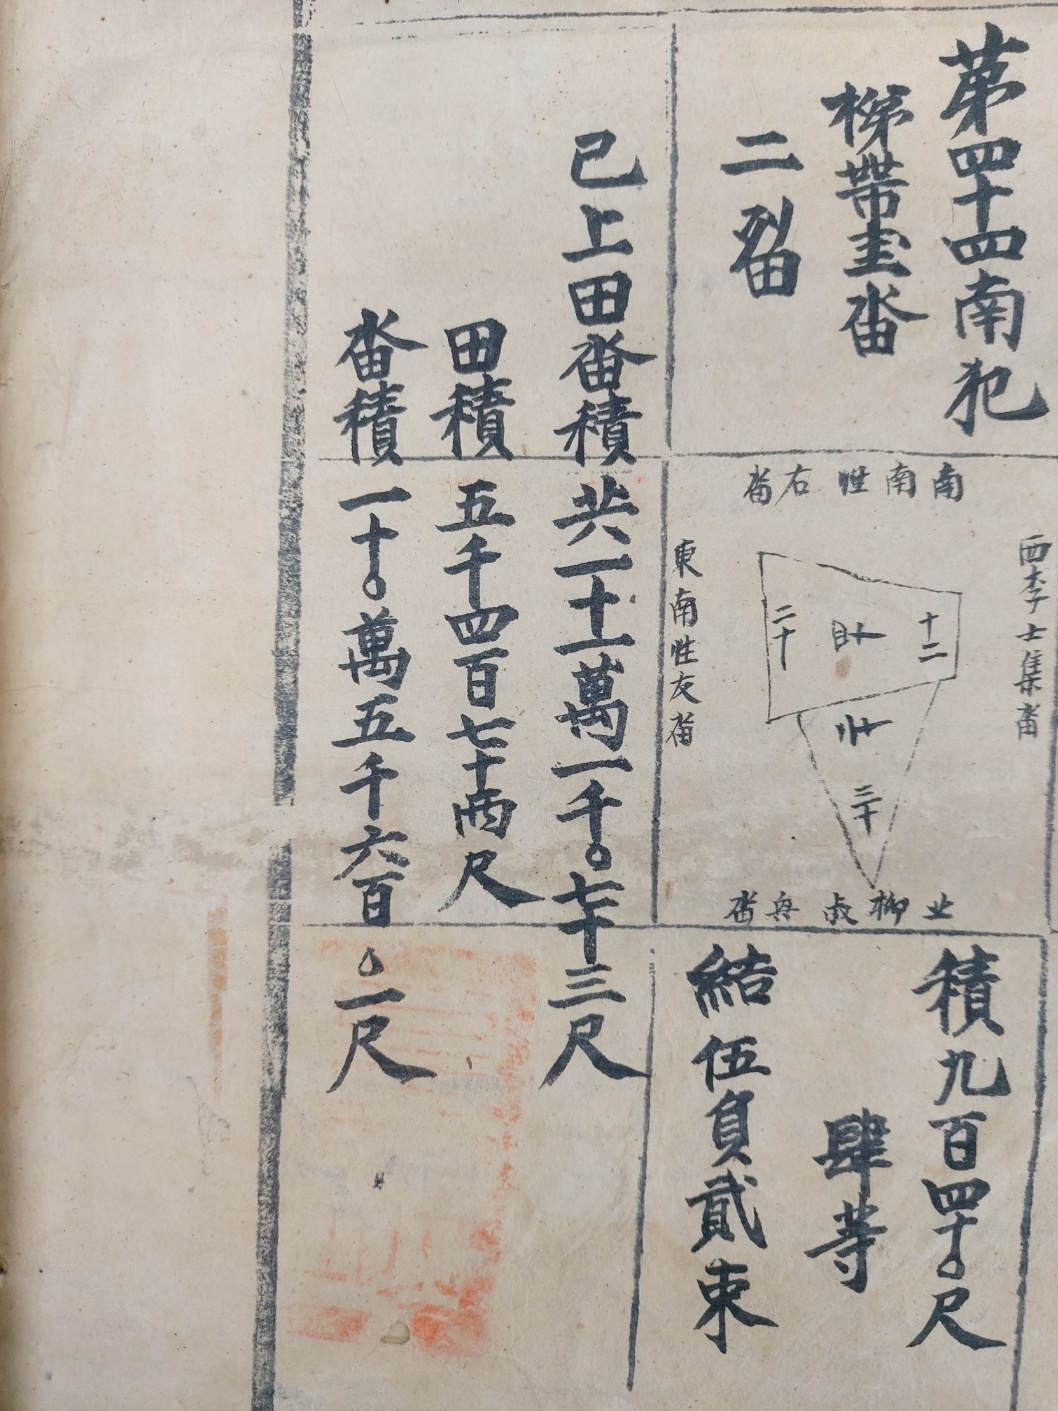 苐四十四南犯
梯帶圭畓
二
南南性右畓
西李士集畓
東南性友畓
十二
二十
三十
北柳舟畓
積九百四十〇尺
肆等
結伍負貳束
已上田畓積共一十一萬一千〇七十三尺
田積五千四百七十兩尺
畓積一十〇萬五千六百〇一尺